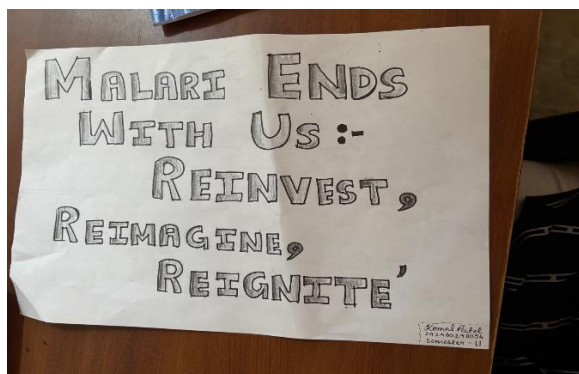 MALARI ENDS
WITH US :-
REINVEST,
REIMAGINE,
REIGNITE'
Komal Patel
Semester - II